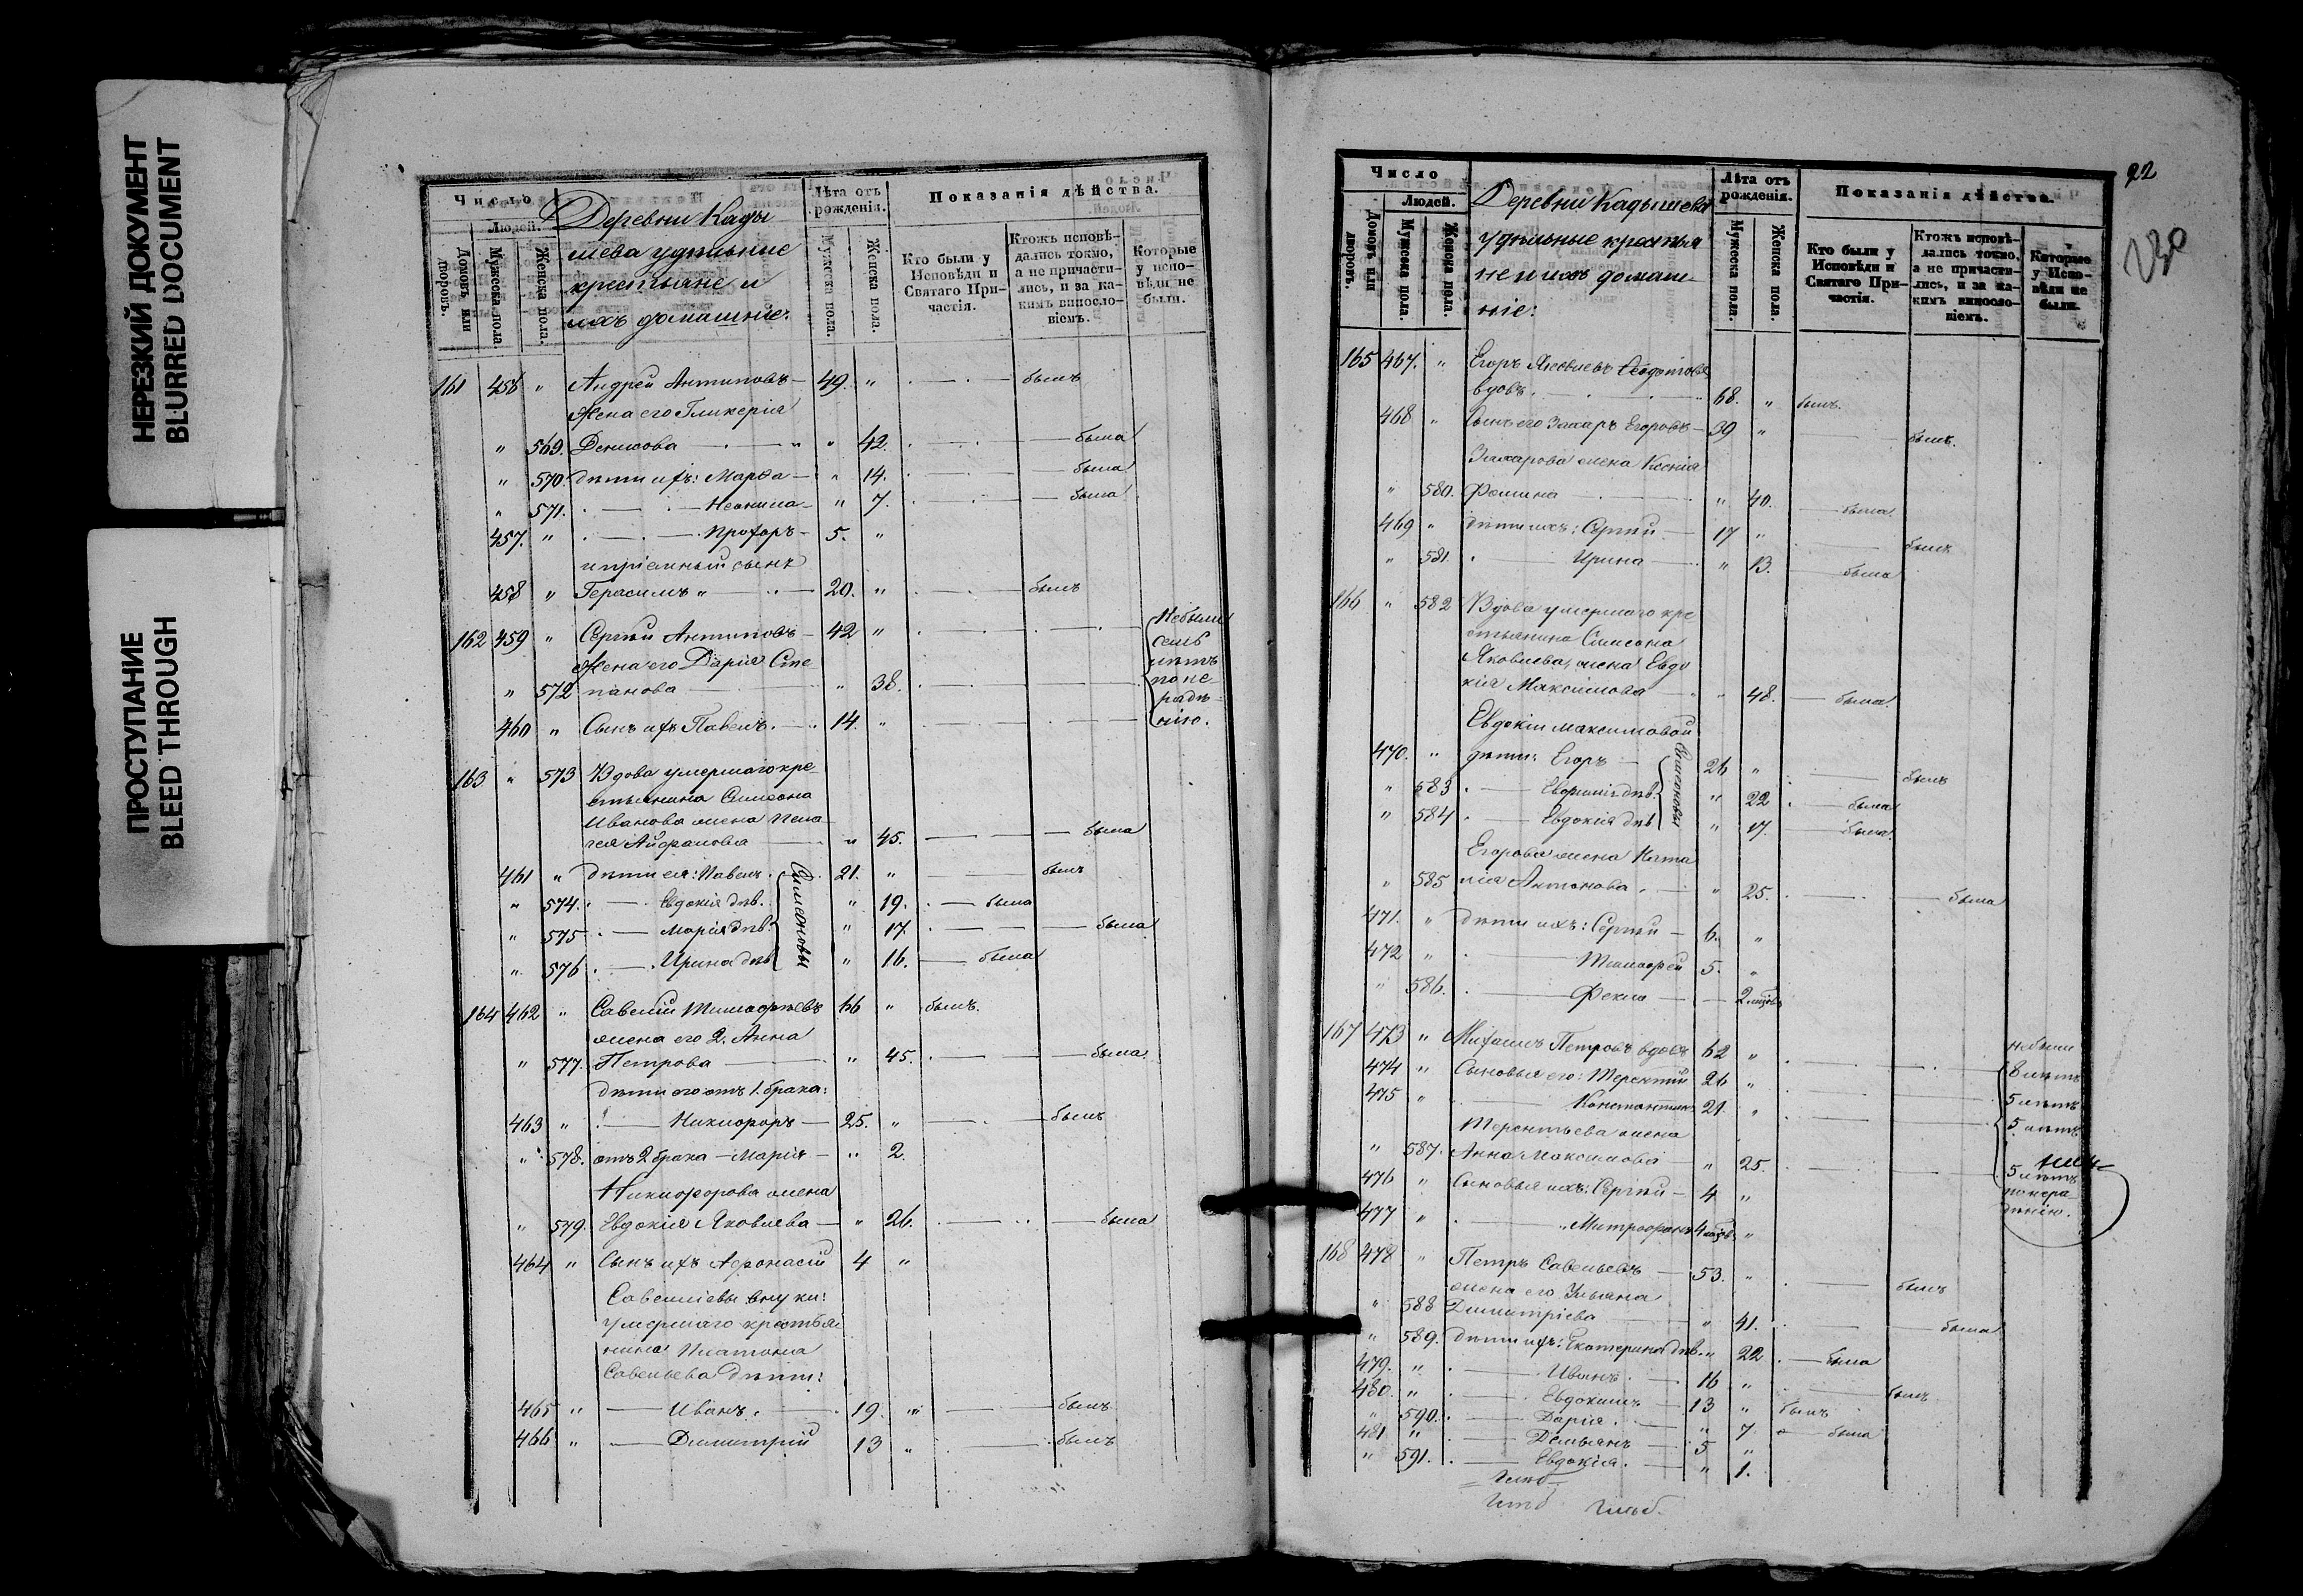 НЕРЕЗКИЙ ДОКУМЕНТ
BLURRED DOCUMENT
ПРОСТУПАНИЕ
BLEED THROUGH
Число
Людей.
Домовъ или дворовъ.
Мужеска пола.
Женска пола.
Деревни Кады
шева удѣльные
крестьяне и
ихъ домашніе.
Лѣта отъ рожденія.
Мужеска пола.
Женска пола.
Показанія дѣйства.
Кто были у Исповѣди и Святаго Причастія.
Ктожъ исповѣдались токмо, а не причастились, и за какимъ винословіемъ.
Которые у исповѣди не были.
161 456 " Андрей Антиповъ — 49. " былъ
Жена его Гликерія
" 569. Денисова " 42. была
" 570. дѣти ихъ: Марѳа — " 14. была
" 571. — Неонила — " 7. была
457. " — Прохоръ — 5. "
и пріемный сынъ
458 " Герасимъ " 20. " былъ
162 459 " Сергѣй Антиповъ — 42 " Небыли
Жена его Дарія Сте семь
" 572 панова " 38. лѣтъ
460 " Сынъ ихъ Павелъ. 14. " по не
радѣ
нію.
163 " 573 Вдова умершаго кре
стьянина Симеона
Иванова жена Пела
гея " 45. была
461 " дѣти ея: Павелъ. 21. " былъ
" 574. — Евдокія дѣв. " 19. была
" 575 — Марія дѣв. " 17. была
" 576 — Ирина дѣв " 16. была
Симеоновы
164 462 " Савелій Тимоѳеевъ 66 " былъ.
жена его 2. Анна
" 577. Петрова " 45. была
дѣти его отъ 1. брака:
463 " — Никифоръ — 25. " былъ
" 578. отъ 2 брака — Марія — " 2.
Никифорова жена
" 579. Евдокія Яковлева — " 26. была
464 " Сынъ ихъ Афонасій 4 "
Савеліевы внуки:
умершаго крестья
нина Платона
Савельева дѣти:
465 " — Иванъ. 19. " былъ
466 " — Димитрій 13 " былъ
22
230
Число
Людей.
Домовъ или дворовъ.
Мужеска пола.
Женска пола.
Деревни Кадышева
удѣльные крестья
не и ихъ домаш
ніе:
Лѣта отъ рожденія.
Мужеска пола.
Женска пола.
Показанія дѣйства.
Кто были у Исповѣди и Святаго Причастія.
Ктожъ исповѣдались токмо, а не причастились, и за какимъ винословіемъ.
Которые у Исповѣди не были.
165 467. " Егоръ Яковлевъ
вдовъ. 68. " былъ.
468 " Сынъ его Захаръ Егоровъ — 39 " былъ.
Захарова жена Ксенія
" 580. Фомина " 40. была.
469 " дѣти ихъ: Сергѣй — 17 " былъ
" 581. — Ирина — " 13. была
166 " 582 Вдова умершаго кре
стьянина Симеона
Яковлева, жена Евдо
кія Максимова " 48. была.
Евдокіи Максимовой
470. " дѣти: Егоръ — 26 " былъ
" 583 — дѣв. " 22 была
" 584 — Евдокія дѣв. " 17. была.
Симеоновы
Егорова жена Ната
" 585 лія Антонова. " 25. была
471. " дѣти ихъ: Сергѣй — 6. "
472 " — Тимофей 5. "
" 586. — Фекла — 2
167 473 " Петровъ вдовъ 62 " небыли
474 " Сыновья его: Терентій 26 " 8 лѣтъ
475 " — Константинъ 21. " 5 лѣтъ
Терентьева жена 5 лѣтъ
" 587. Анна Максимова " 25. 5 лѣтъ
476 " Сыновья ихъ: Сергѣй — 4 " понера
477 " — Митрофанъ 4 " дѣнію.
168 478 " Петръ Савельевъ — 53. " былъ
жена его Ульяна
" 588 Димитріева " 41. была
" 589. дѣти ихъ: Екатерина дѣв. " 22 была
479. " — Иванъ. 16 " былъ
480. " — Евдокимъ — 13 " былъ
" 590. — Дарія. " 7. была
481 " — Демьянъ 5 "
" 591. — Евдокія. " 1.